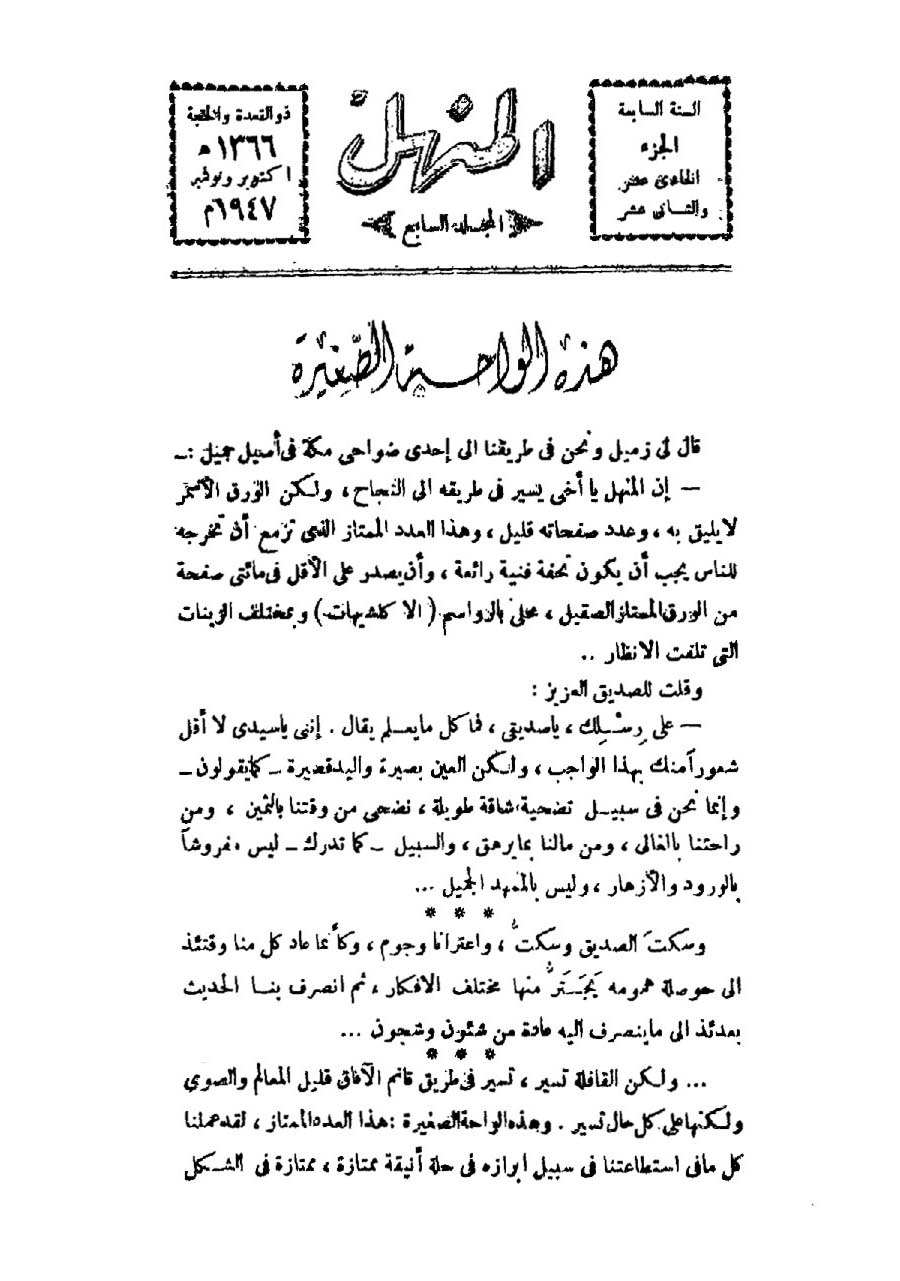 السنة السابعة
الجزء
الحادى عشر
والثانى عشر
المنهل
المجلد السابع
ذو القعدة والحجة
١٣٦٦ هـ
اكتوبر ونوفمبر
١٩٤٧م
هذه الواحة الصغيرة
قال لى زميل ونحن فى طريقنا الى إحدى ضواحى مكة فى أصيل جميل : ــ
— إن المنهل يا أخى يسير فى طريقه الى النجاح ، ولكن الورق الأسمر
لا يليق به ، وعدد صفحاته قليل ، وهذا العدد الممتاز الذى تزمع أن تخرجه
للناس يجب أن يكون تحفة فنية رائعة ، وأن يصدر على الأقل فى مائتى صفحة
من الورق الممتاز الصقيل ، محلى بالرواسم ( الاكلشيهات ) وبمختلف الزينات
التى تلفت الانظار ..
وقلت للصديق العزيز :
— على رِسْلِك ، ياصديقى ، فما كل مايعلم يقال . إننى ياسيدى لا أقل
شعوراً منك بهذا الواجب ، ولكن العين بصيرة واليد قصيرة ــ كما يقولون ــ
وإنما نحن فى سبيل تضحية شاقة طويلة ، نضحى من وقتنا بالثمين ، ومن
راحتنا بالغالى ، ومن مالنا بما يرهق ، والسبيل ــ كما تدرك ــ ليس مفروشاً
بالورود والأزهار ، وليس بالممهد الجميل ...
* * *
وسكتَ الصديق وسكتُّ ، واعترانا وجوم ، وكأنما عاد كل منا وقتئذ
الى حوصلة همومه يَجْتَرُّ منها مختلف الافكار ، ثم انصرف بنا الحديث
بعدئذ الى ماينصرف اليه عادة من شئون وشجون ...
* * *
... ولكن القافلة تسير ، تسير فى طريق قاتم الآفاق قليل المعالم والصوى
ولكنها على كل حال تسير . وهذه الواحة الصغيرة : هذا العدد الممتاز ، لقد عملنا
كل مافى استطاعتنا فى سبيل ابرازه فى حلة أنيقة ممتازة ، ممتازة فى الشكل